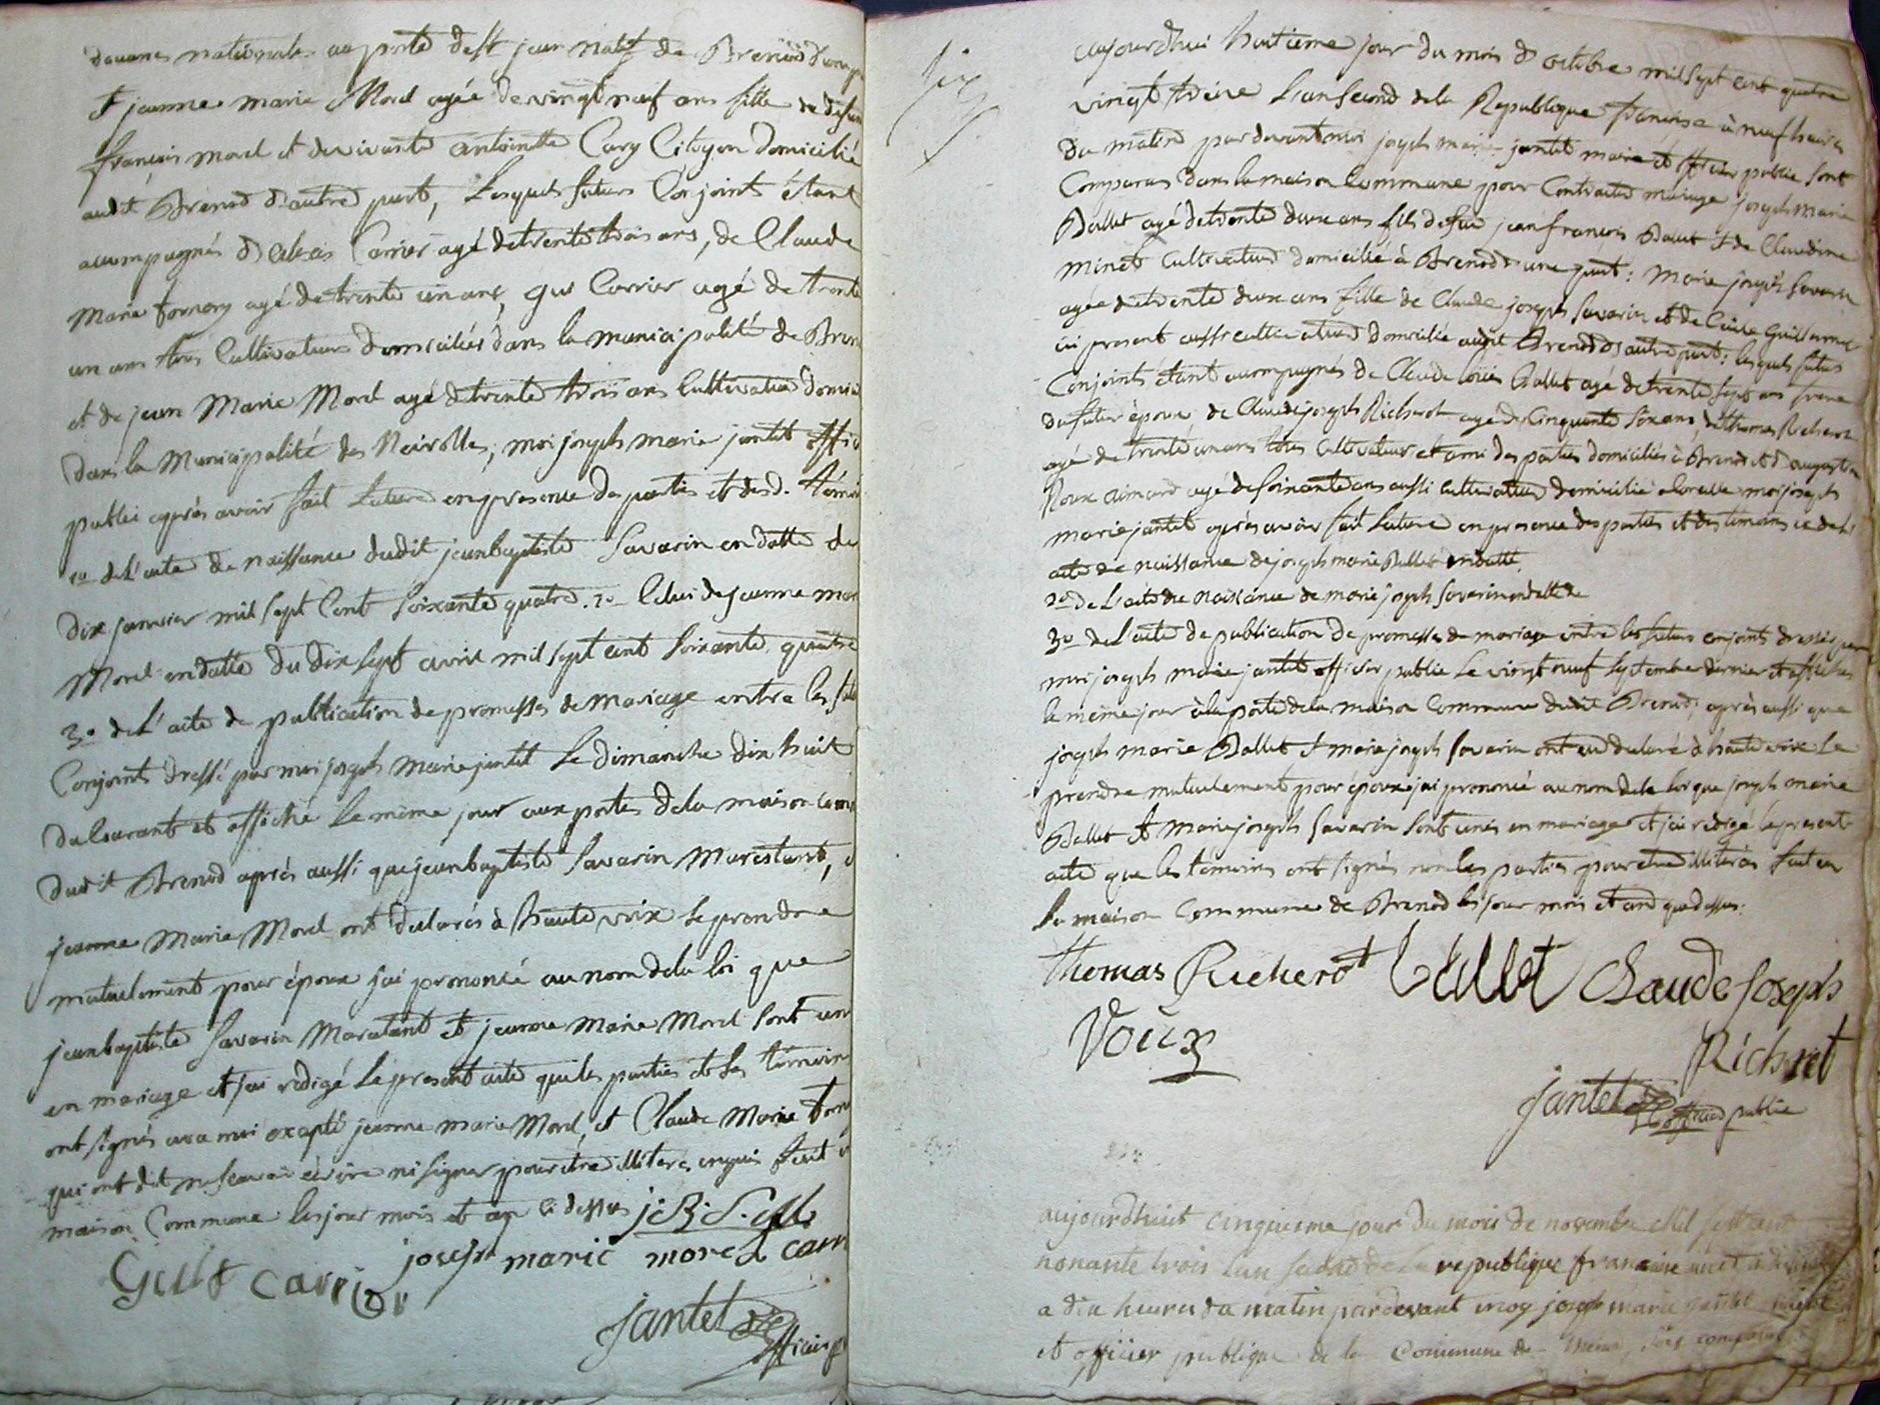 douanes nationales au porte de st jean natif de Brenod d'une p
et jeanne marie Morel agée de vingt neuf ans fille de defun
françois morel et de vivante antoinette Cary Citoyen domicilié
audit Brenod d'autre part, Lesquels futurs Conjoints étant
accompagnés d'alexis Carrier agé de trente trois ans, de Claude
Marie tornery agé de trente un ans, gus Carrier agé de trente
un ans tous Cultivateurs domiciliés dans la municipalité de Bren
et de jean Marie Morel agé de trente trois ans Cultivateur domici
dans la Municipalité des Neirolles, moi joseph marie jantet offic
public après avoir fait Lecture en presence des parties et desd. témoi
1o de L'acte de naissance dudit jeanbaptiste Savarin en datte du
dix janvier mil sept Cent soixante quatre. 2o Celui de jeanne mar
Morel en datte du dix sept avril mil sept cent soixante quatre
3o de L'acte de publication de promesses de mariage entre les fut
Conjoints dressé par moi joseph marie jantet Le dimanche dix huit
du Courant et affiché Le même jour aux portes de la maison com
dudit Brenod après aussi que jeanbaptiste Savarin Maratant, e
jeanne Marie Morel ont declarés à haute voix se prendre
mutuelement pour époux j'ai prononcé au nom de la loi que
jeanbaptiste Savarin Maratant et jeanne Marie Morel sont uni
en mariage et j'ai redigé Le present acte que les parties et les témoin
ont signés avec moi excepté jeanne marie Morel, et Claude Marie torn
qui ont dit ne scavoir écrire ni signer pour etre illiteres enquis fait e
maison Commune les jour mois et an ci dessus j:B:S.
joseph marie morel carr
Gust Carrier
Jantet officier p
aujourd'hui huitieme jour du mois d'octobre mil sept cent quatre
vingt treize L'an second de la Republique francoise à neuf heures
du matin par devant moi joseph marie jantet maire et officier public sont
Comparus dans la maison Commune pour Contracter mariage joseph Marie
Ballet agé de trente deux ans fils de feu jean françois Ballet et de Claudine
Minet Cultivateur domicilié à Brenod d'une part: Marie joseph Savarin
agée de trente deux ans fille de Claude joseph Savarin et de Cécile Guillermet
ici present aussi cultivateur domicilié audit Brenod d'autre part: lesquels futurs
Conjoints étant accompagnés de Claude Louis Ballet agé de trente sept ans frere
du futur époux de Claude joseph Richerot agé de Cinquante six ans, de thomas Richerot
agé de trente un ans tous Cultivateurs et ami des parties domiciliés à Brenod et d'augustin
Roux aimard agé de soixante ans aussi cultivateur domicilié moi joseph
marie jantet après avoir fait Lecture en presence des parties et des témoins
acte de naissance de joseph marie Ballet en datte
2o de L'acte de naissance de marie joseph Savarin en datte de
3o de L'acte de publication de promesses de mariage entre les futurs conjoints dressé par
moi joseph marie jantet officier public Le vingt neuf septembre dernier et affiché
le même jour à la porte de la maison Commune dudit Brenod, après aussi que
joseph marie Ballet et marie joseph Savarin ont eu declaré à haute voix se
prendre mutuelement pour époux j'ai prononcé au nom de la loi que joseph marie
Ballet et Marie joseph Savarin sont unis en mariage et j'ai redigé le present
acte que les témoins ont signés non les parties pour etre illiterés fait en
la maison Commune de Brenod les jour mois et an que dessus.
thomas Richerot Ballet Claude Joseph
Roux
Richerot
Jantet officier public
aujourdhuit cinquieme jour du mois de novembre Mil sept cent
nonante trois Lan second de la republique francaise
a dix heures du matin pardevant moy joseph marie jantet
et officier publique de la Commune de